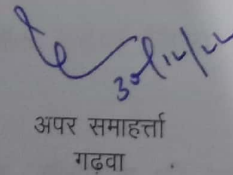 30/12/22
अपर समाहर्त्ता
गढ़वा